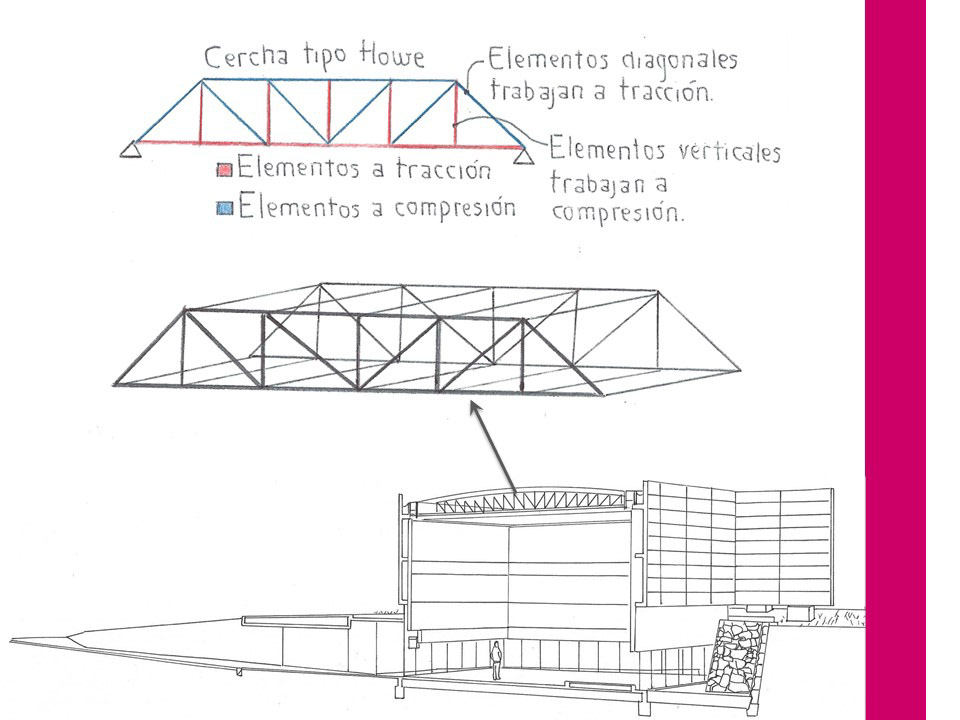 Cercha tipo Howe
Elementos diagonales
trabajan a tracción.
Elementos verticales
trabajan a
compresión.
Elementos a tracción
Elementos a compresión